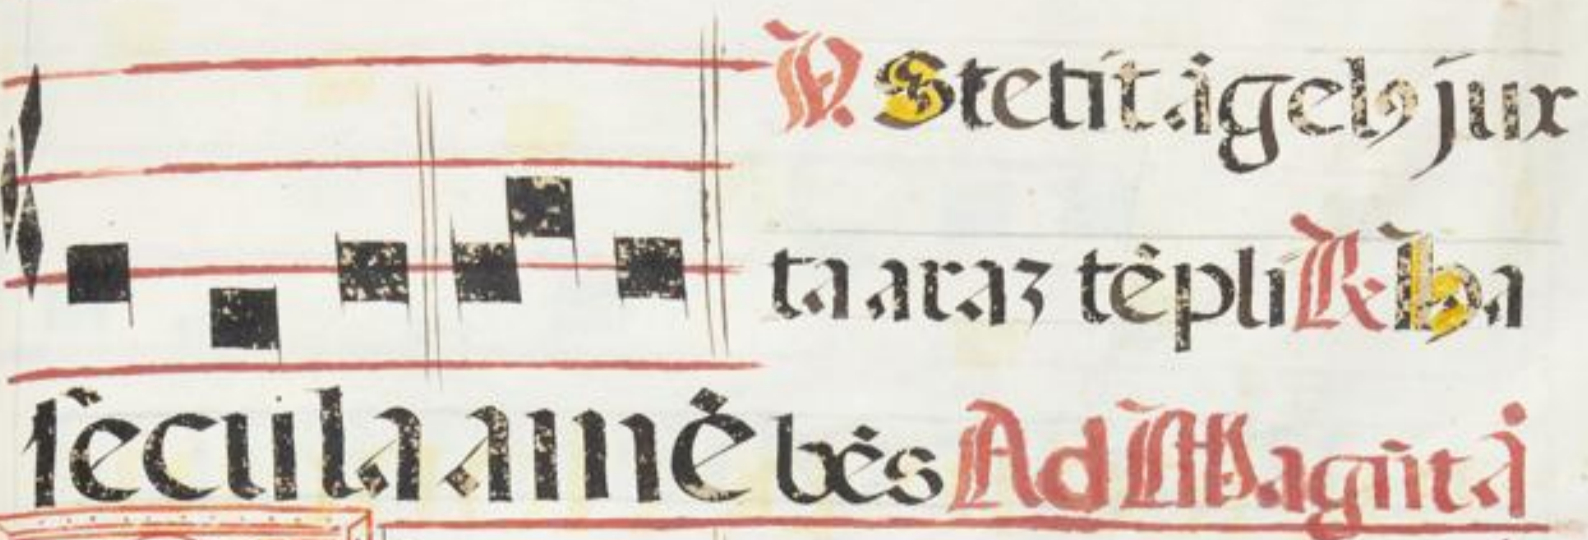 ℣. Stetit āgelꝰ jux
ta araz tēpli ℟. ha
secula amē bēs Ad Magnitā